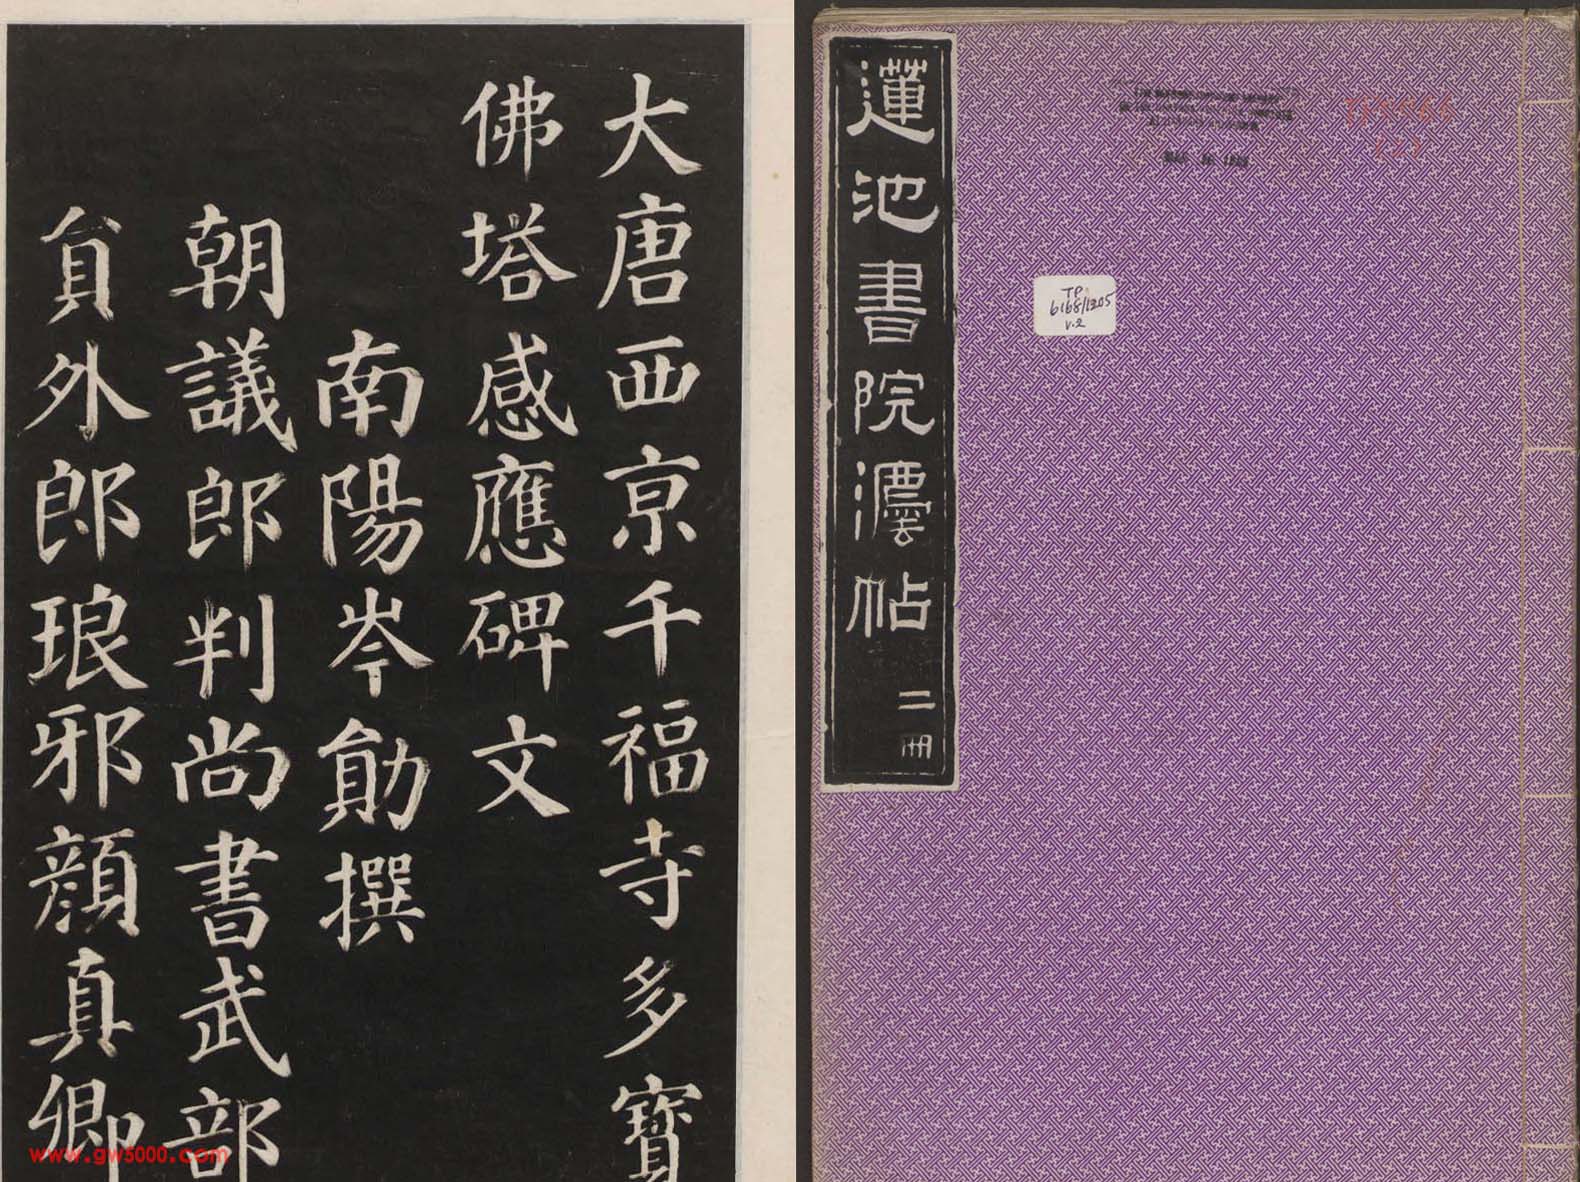 蓮池書院灋帖
二冊
TP
6168/1205
v.2
大唐西京千福寺多寶
佛塔感應碑文
南陽岑勛撰
朝議郎判尚書武部
貟外郎琅邪顏真卿
www.gw5000.com